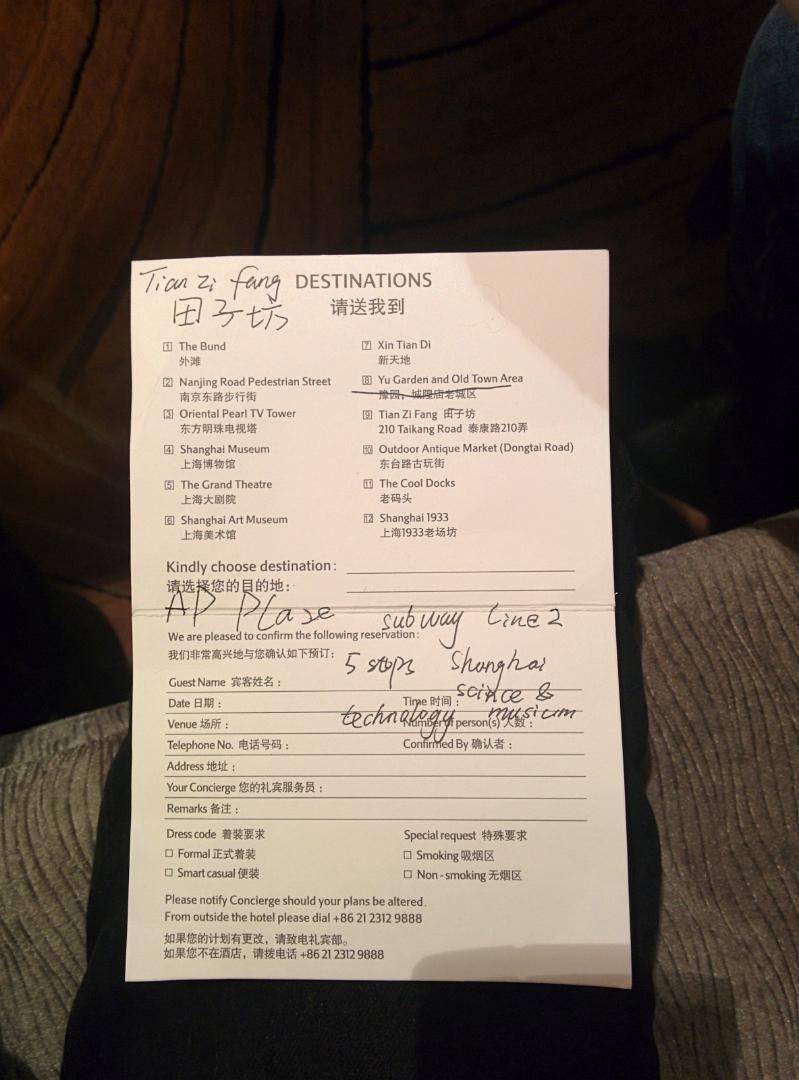 Tian Zi fang
田子坊
DESTINATIONS
请送我到
1 The Bund
外滩
2 Nanjing Road Pedestrian Street
南京东路步行街
3 Oriental Pearl TV Tower
东方明珠电视塔
4 Shanghai Museum
上海博物馆
5 The Grand Theatre
上海大剧院
6 Shanghai Art Museum
上海美术馆
7 Xin Tian Di
新天地
8 Yu Garden and Old Town Area
豫园，城隍庙老城区
9 Tian Zi Fang 田子坊
210 Taikang Road 泰康路210弄
10 Outdoor Antique Market (Dongtai Road)
东台路古玩街
11 The Cool Docks
老码头
12 Shanghai 1933
上海1933老场坊
Kindly choose destination:
请选择您的目的地:
AP Plaze subway Line 2
We are pleased to confirm the following reservation:
我们非常高兴地与您确认如下预订:
5 stops Shanghai
Guest Name 宾客姓名:
science &
Date 日期: Time 时间:
technology musium
Venue 场所: Number of person(s) 人数:
Telephone No. 电话号码: Confirmed By 确认者:
Address 地址:
Your Concierge 您的礼宾服务员:
Remarks 备注:
Dress code 着装要求
□ Formal 正式着装
□ Smart casual 便装
Special request 特殊要求
□ Smoking 吸烟区
□ Non-smoking 无烟区
Please notify Concierge should your plans be altered.
From outside the hotel please dial +86 21 2312 9888
如果您的计划有更改，请致电礼宾部。
如果您不在酒店，请拨电话 +86 21 2312 9888